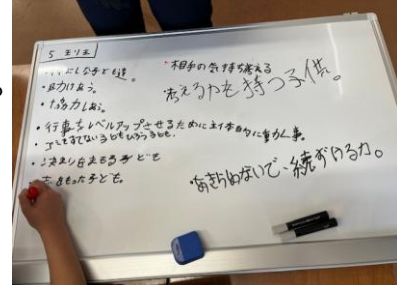 ・助け合う。
・協力し合う。
・行事をレベルアップさせるために主体的に動く事。
・ゴミをすてない子どもひろう子ども。
・決まりを守る子ども
をもった子ども。
・相手の気持ち考える
考える力を持つ子供。
・あきらめないで、続ける力。